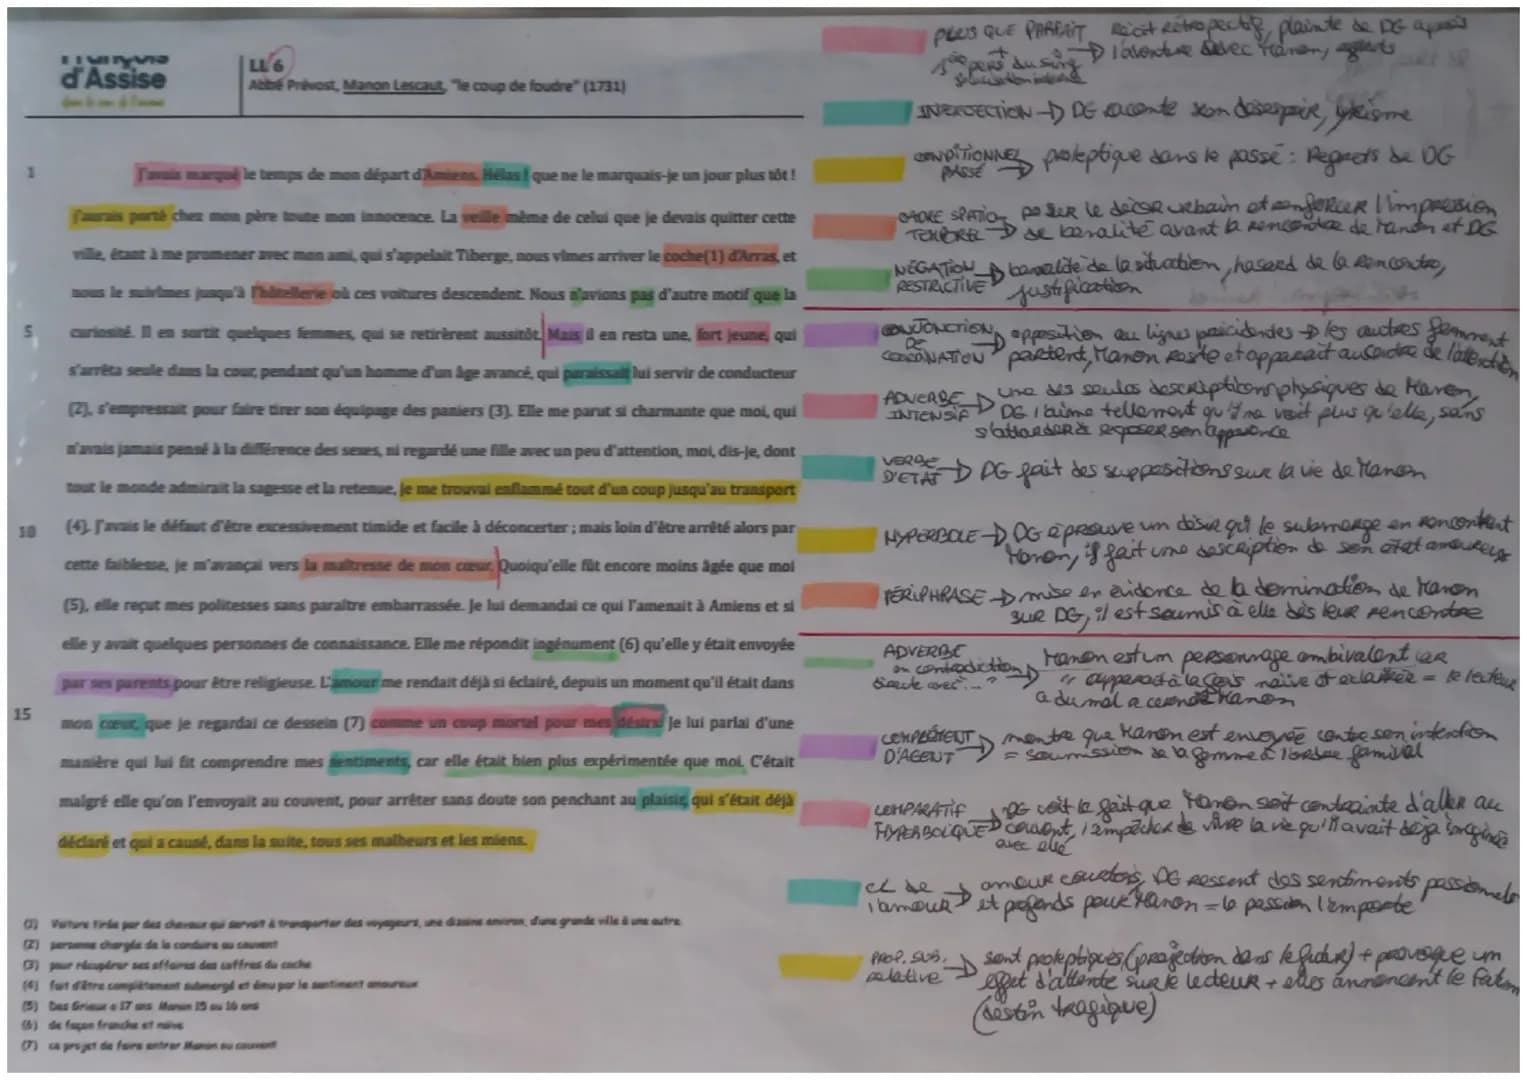 d'Assise
LL 6
Abbé Prévost, Manon Lescaut, "le coup de foudre" (1731)
1
J'avais marqué le temps de mon départ d'Amiens. Hélas ! que ne le marquais-je un jour plus tôt !
j'aurais porté chez mon père toute mon innocence. La veille même de celui que je devais quitter cette
ville, étant à me promener avec mon ami, qui s'appelait Tiberge, nous vîmes arriver le coche(1) d'Arras, et
nous le suivîmes jusqu'à l'hôtellerie où ces voitures descendent. Nous n'avions pas d'autre motif que la
5
curiosité. Il en sortit quelques femmes, qui se retirèrent aussitôt. Mais il en resta une, fort jeune, qui
s'arrêta seule dans la cour, pendant qu'un homme d'un âge avancé, qui paraissait lui servir de conducteur
(2), s'empressait pour faire tirer son équipage des paniers (3). Elle me parut si charmante que moi, qui
n'avais jamais pensé à la différence des sexes, ni regardé une fille avec un peu d'attention, moi, dis-je, dont
tout le monde admirait la sagesse et la retenue, je me trouvai enflammé tout d'un coup jusqu'au transport
10
(4). J'avais le défaut d'être excessivement timide et facile à déconcerter ; mais loin d'être arrêté alors par
cette faiblesse, je m'avançai vers la maîtresse de mon cœur. Quoiqu'elle fût encore moins âgée que moi
(5), elle reçut mes politesses sans paraître embarrassée. Je lui demandai ce qui l'amenait à Amiens et si
elle y avait quelques personnes de connaissance. Elle me répondit ingénument (6) qu'elle y était envoyée
par ses parents pour être religieuse. L'amour me rendait déjà si éclairé, depuis un moment qu'il était dans
15
mon cœur, que je regardai ce dessein (7) comme un coup mortel pour mes désirs. Je lui parlai d'une
manière qui lui fit comprendre mes sentiments, car elle était bien plus expérimentée que moi. C'était
malgré elle qu'on l'envoyait au couvent, pour arrêter sans doute son penchant au plaisir, qui s'était déjà
déclaré et qui a causé, dans la suite, tous ses malheurs et les miens.
(1) Voiture tirée par des chevaux qui servait à transporter des voyageurs, une dizaine environ, d'une grande ville à une autre.
(2) personne chargée de la conduire au couvent
(3) pour récupérer ses affaires des coffres du coche
(4) fait d'être complètement submergé et ému par le sentiment amoureux
(5) Des Grieux a 17 ans Manon 15 ou 16 ans
(6) de façon franche et naïve
(7) ce projet de faire entrer Manon au couvent
PLUS QUE PARFAIT Récit rétrospectif, plainte de DG après
+ 1ère pers du sing → l'aventure avec Manon,
INTERJECTION → DG raconte son désespoir, lyrisme
CONDITIONNEL PASSÉ → proleptique dans le passé : Regrets de DG
CADRE SPATIO TEMPOREL → poser le décor urbain et renforcer l'impression
de banalité avant la rencontre de Manon et DG
NÉGATION RESTRICTIVE → banalité de la situation, hasard de la rencontre,
justification
CONJONCTION DE COORDINATION → opposition au lignes précédentes → les autres femmes
partent, Manon reste et apparait au centre de l'attention
ADVERBE INTENSIF → une des seules descriptions physiques de Manon,
DG l'aime tellement qu'il ne voit plus qu'elle, sans
s'attarder à exposer son apparence
VERBE D'ÉTAT → DG fait des suppositions sur la vie de Manon
HYPERBOLE → DG éprouve un désir qui le submerge en rencontrant
Manon, il fait une description de son état amoureux
PÉRIPHRASE → mise en évidence de la domination de Manon
sur DG, il est soumis à elle dès leur rencontre
ADVERBE en contradiction directe avec "..." → Manon est un personnage ambivalent car
apparait à la fois naïve et éclairée = le lecteur
a du mal a cerner Manon
COMPLÉMENT D'AGENT → montre que Manon est envoyée contre son intention
= soumission de la femme à l'ordre familial
COMPARATIF HYPERBOLIQUE → DG voit le fait que Manon soit contrainte d'aller au
couvent, l'empêcher de vivre la vie qu'il avait déjà imaginée
avec elle
CL de l'amour → amour courtois, DG ressent des sentiments passionnels
et profonds pour Manon = la passion l'emporte
PROP. SUB. relative → sont proleptiques (projection dans le futur) + provoque un
effet d'attente sur le lecteur + elles annoncent le fatum
(destin tragique)